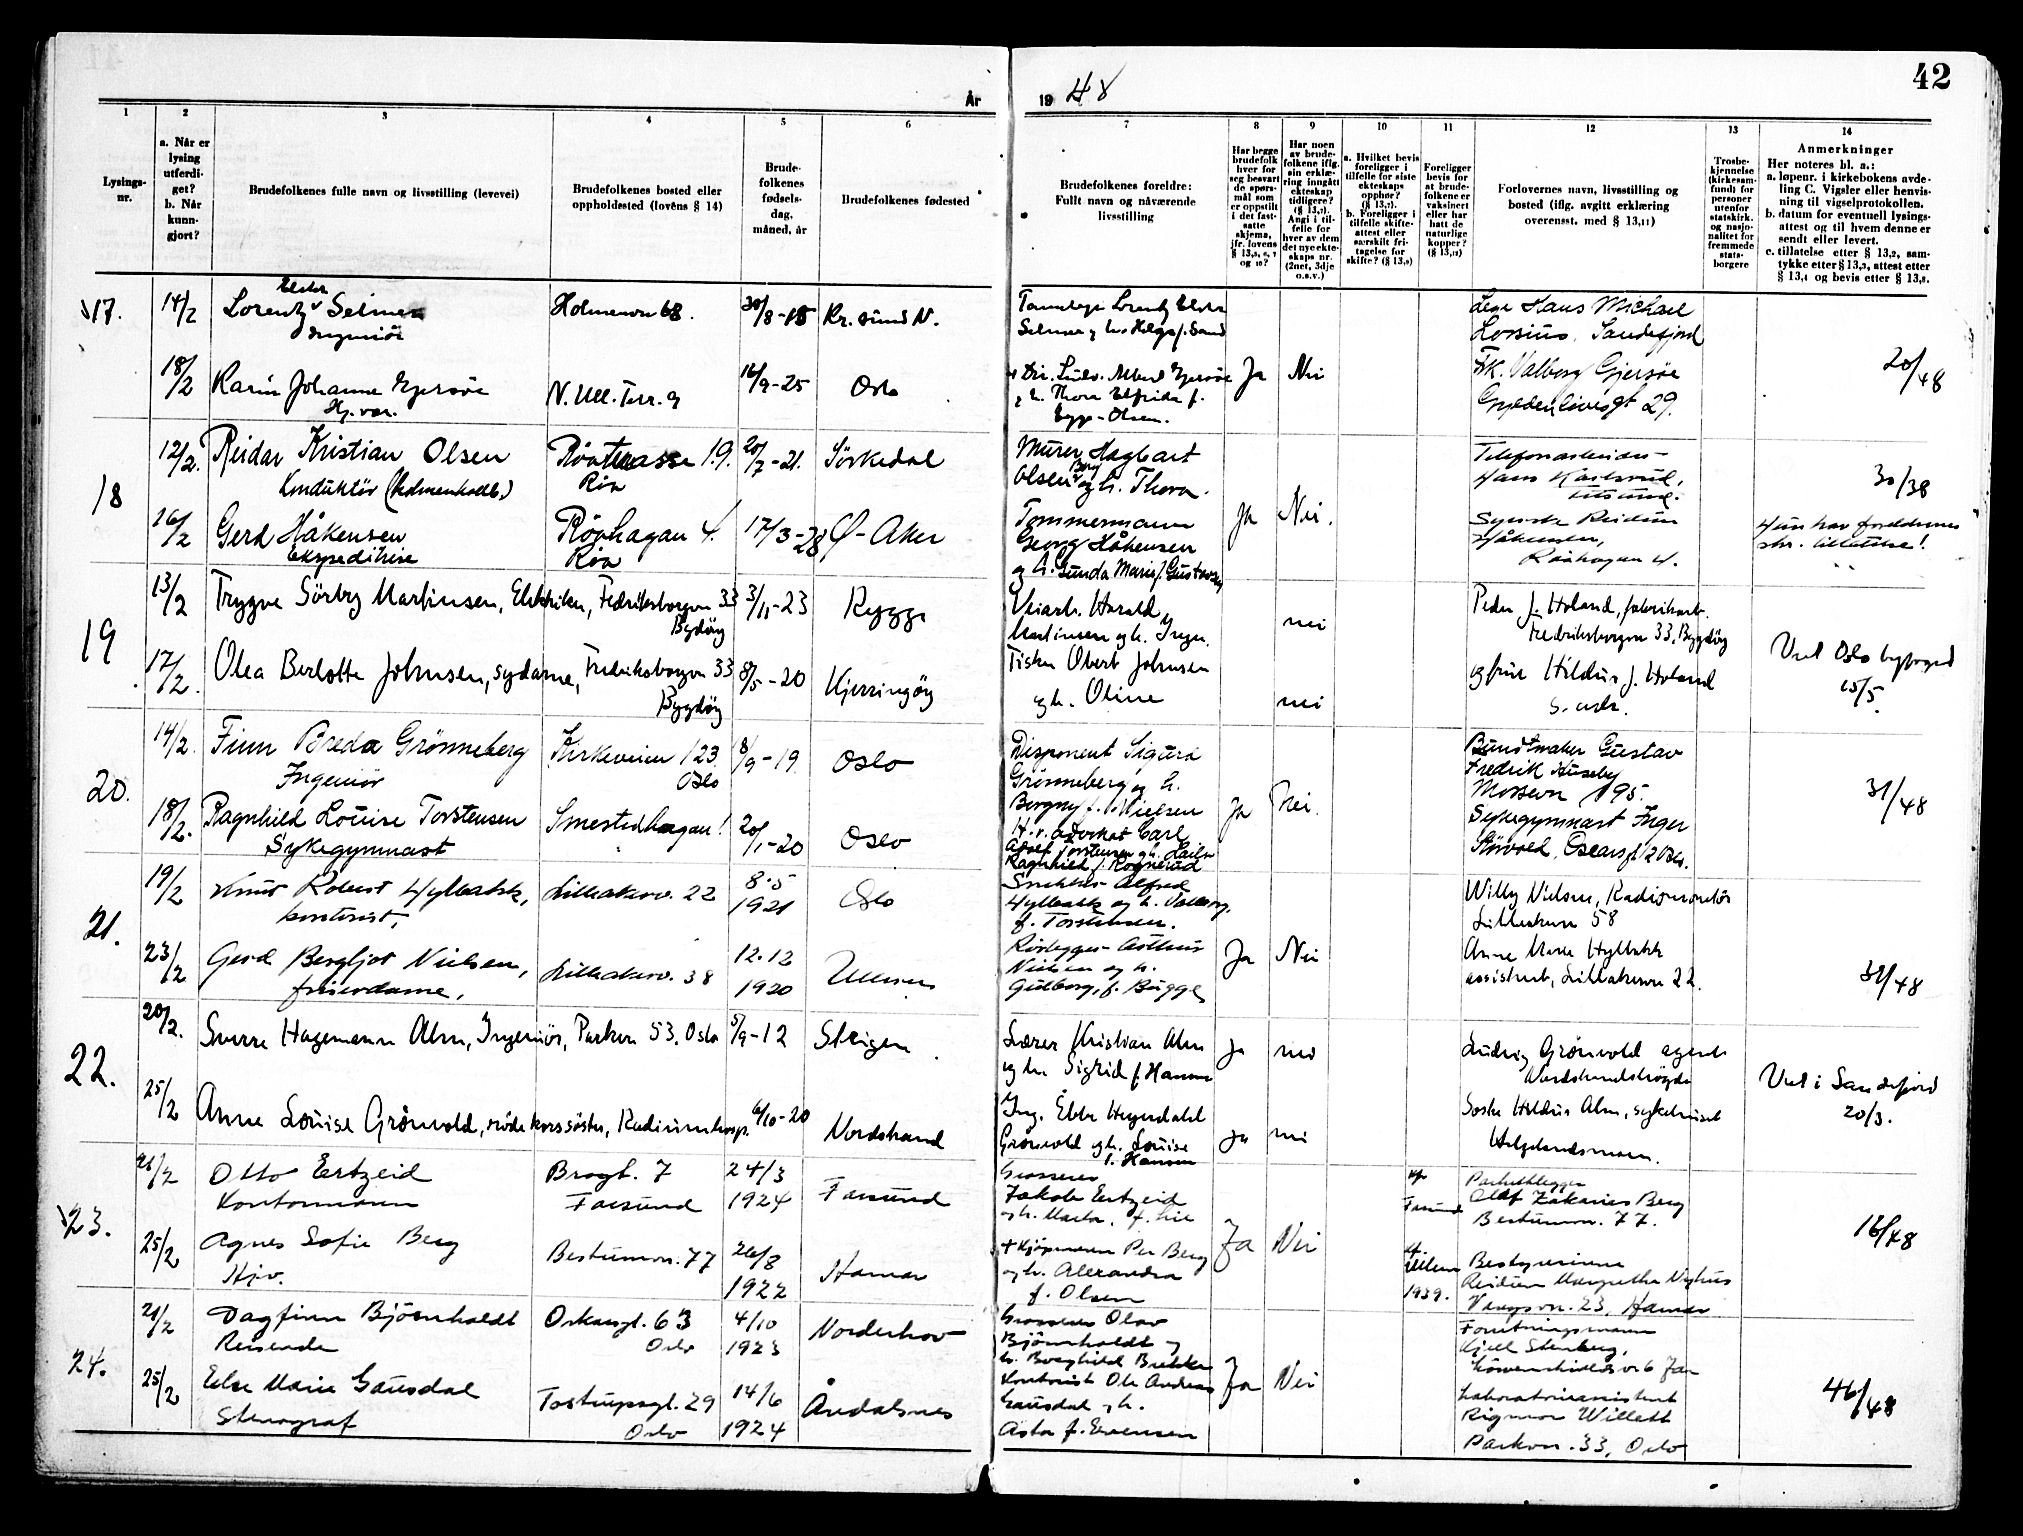 42
År
19 48
1
2
3
4
5
6
7
8
9
10
11
12
13
14
Lysings-
nr.
a. Når er
lysing
utferdi-
get?
b. Når
kunn-
gjort?
Brudefolkenes fulle navn og livsstilling (levevei)
Brudefolkenes bosted eller
oppholdested (lovens § 14)
Brude-
folkenes
fødsels-
dag,
måned, år
Brudefolkenes fødested
Brudefolkenes foreldre:
Fullt navn og nåværende
livsstilling
Har begge
brudefolk
hver for
seg besvart
de spørs-
mål som
er oppstilt
i det fast-
satte
skjema,
jfr. lovens
Har noen
av brude-
folkene iflg.
sin erklæ-
ring inngått
ekteskap
tidligere?
(§ 13,7).
Angi i til-
felle for
hver av dem
det nye ekte-
skaps nr.
(2net, 3dje
o.s.v.)
a. Hvilket bevis
foreligger i
tilfelle for siste
ekteskaps
opphør?
(§ 13,7).
b. Foreligger i
tilfelle skifte-
attest eller
særskilt fri-
tagelse for
skifte? (§ 13,9)
Foreligger
bevis for
at brude-
folkene er
vaksinert
eller har
hatt de
naturlige
kopper?
(§ 13,12)
Forlovernes navn, livsstilling og
bosted (iflg. avgitt erklæring
overensst. med § 13,11)
Trosbe-
kjennelse
(kirkesam-
fund) for
personer
utenfor
statskirk.
og nasjo-
nalitet for
fremmede
stats-
borgere
Anmerkninger
Her noteres bl. a.:
a. løpenr. i kirkebokens avde-
ling C. Vigsler eller henvis-
ning til vigselprotokollen.
b. datum for eventuell lysings-
attest og til hvem denne er
sendt eller levert.
c. tillatelse etter § 13,2, sam-
tykke etter § 13,3, attest etter
§ 13,4 og bevis etter § 13,8.
17.
14/2
Lorentz Selmer
Ingeniør
Holmenvn 68.
Kr. sund N.
18/2
Karin Johanne Gjersøe
Hj. vær.
N. Ull. Terr. 9
16/9-25
Oslo
Ja
Nei
Frk. Valborg Gjersøe
Gyldenløvesgt 29.
20/48
18
12/2.
Reidar Kristian Olsen
Konduktør (Holmenkollb.)
Røaterrasse 19.
Røa
20/7-21.
Sørkedal
Murer Hagbart
Olsen og h. Thora.
30/38
16/2
Gerd Håkensen
Ekspeditrise
Røahagan 4.
Røa
17/3-28
Ø-Aker
Tømmermann
Georg Håkensen
og h. Gunda Marie f. Gustavsen
Ja
Nei.
Håkensen,
Røahagan 4.
Hun har foreldrenes
skr. tillatelse!
19
13/2
Trygve Sørby Martinsen, Elektriker, Fredriksborgvn 33
Bygdøy
3/11-23
Rygge
Harald
Martinsen og h. Inga.
nei
Peder J. Holand, fabrikarb.
Fredriksborgvn 33, Bygdøy
17/2.
Olea Berlotte Johnsen, sydame, Fredriksborgvn 33
Bygdøy
8/5-20
Kjerringøy
Fisker Obert Johnsen
og h. Oline
nei
og frue Hildur J. Holand
s. adr.
Viet Oslo byfoged
15/5.
20.
14/2.
Finn Breda Grønneberg
Ingeniør
Kirkeveien 123
Oslo
8/9-19
Oslo
Disponent Sigurd
Grønneberg og h.
Borgny f. Nielsen
Buntmaker Gustav
Fredrik Huseby
Mossevn 195.
18/2.
Ragnhild Louise Torstensen
Sykegymnast
Smestadhagan 1
20/1-20
Oslo
H.r. advokat Carl
Adolf Torstensen og h. Laila
Ragnhild f. Rognerud
Ja
Nei.
Sykegymnast Inger
31/48
21.
19/2
Knut Robert Hylbakk,
kontorist,
Lilleakerv. 22
8.5
1921
Oslo
Snekker Alfred
Hylbakk og h. Valborg,
f. Torstensen.
Willy Nielsen, Radiomontør
Lilleakervn 58
23/2
Gerd Bergljot Nielsen,
friserdame,
Lilleakerv. 38
12.12
1920
Ullern
Rørlegger Arthur
Nielsen og h.
Gudborg, f. Bugge
Ja
Nei
Anne Marie Hylbakk
assistent, Lilleakervn 22.
32/48
22.
20/2.
Sverre Hagemann Alm, Ingeniør, Parkvn 53, Oslo
5/9-12
Steigen
Lærer Kristian Alm
og h. Sigrid f. Hansen
Ja
nei
Ludvig Grønvold agent
Nordstrandshøgda
25/2
Anne Louise Grønvold, røde korssøster, Radiumhosp.
6/10-20
Nordstrand
Ing. Ebbe Hegerdahl
Grønvold og h. Louise
f. Hansen
Ja
nei
Søster Hildur Alm, sykehuset
Helgelandsmoen.
Viet i Sandefjord
20/3.
23.
21/2
Otto Ertzeid
Kontormann
Brogt. 7
Farsund
24/3
1924
Farsund
Grosserer
Jakob Ertzeid
og h. Marta, f. Lie
Farsund
Parkettlegger
Olaf Zakarias Berg
Bestumvn. 77.
25/2
Agnes Sofie Berg
Hjv.
Bestumvn. 77
26/8
1922
Hamar
+ Kjøpmann Per Berg
og h. Alexandra
f. Olsen
Ja
Nei
Ullern
1939.
Bestyrerinne
Reidun Margrethe Nyhus
Vangsvn. 23, Hamar
16/48
24.
21/2
Dagfinn Bjørnholdt
Reisende
Oskarsgt. 63
Oslo
4/10
1923
Norderhov
Grosserer Olav
Bjørnholdt og
h. Borghild Brekke
Forretningsmann
Kjell Stenberg,
25/2
Else Marie Gausdal
Stenograf
Tostrupsgt. 29
Oslo
14/6
1924
Åndalsnes
Kontorist Ole Andreas
Gausdal og h.
Asta f. Evensen
Ja
Nei
Laboratorieassistent
Rigmor Willett
Parkvn. 33, Oslo
46/48